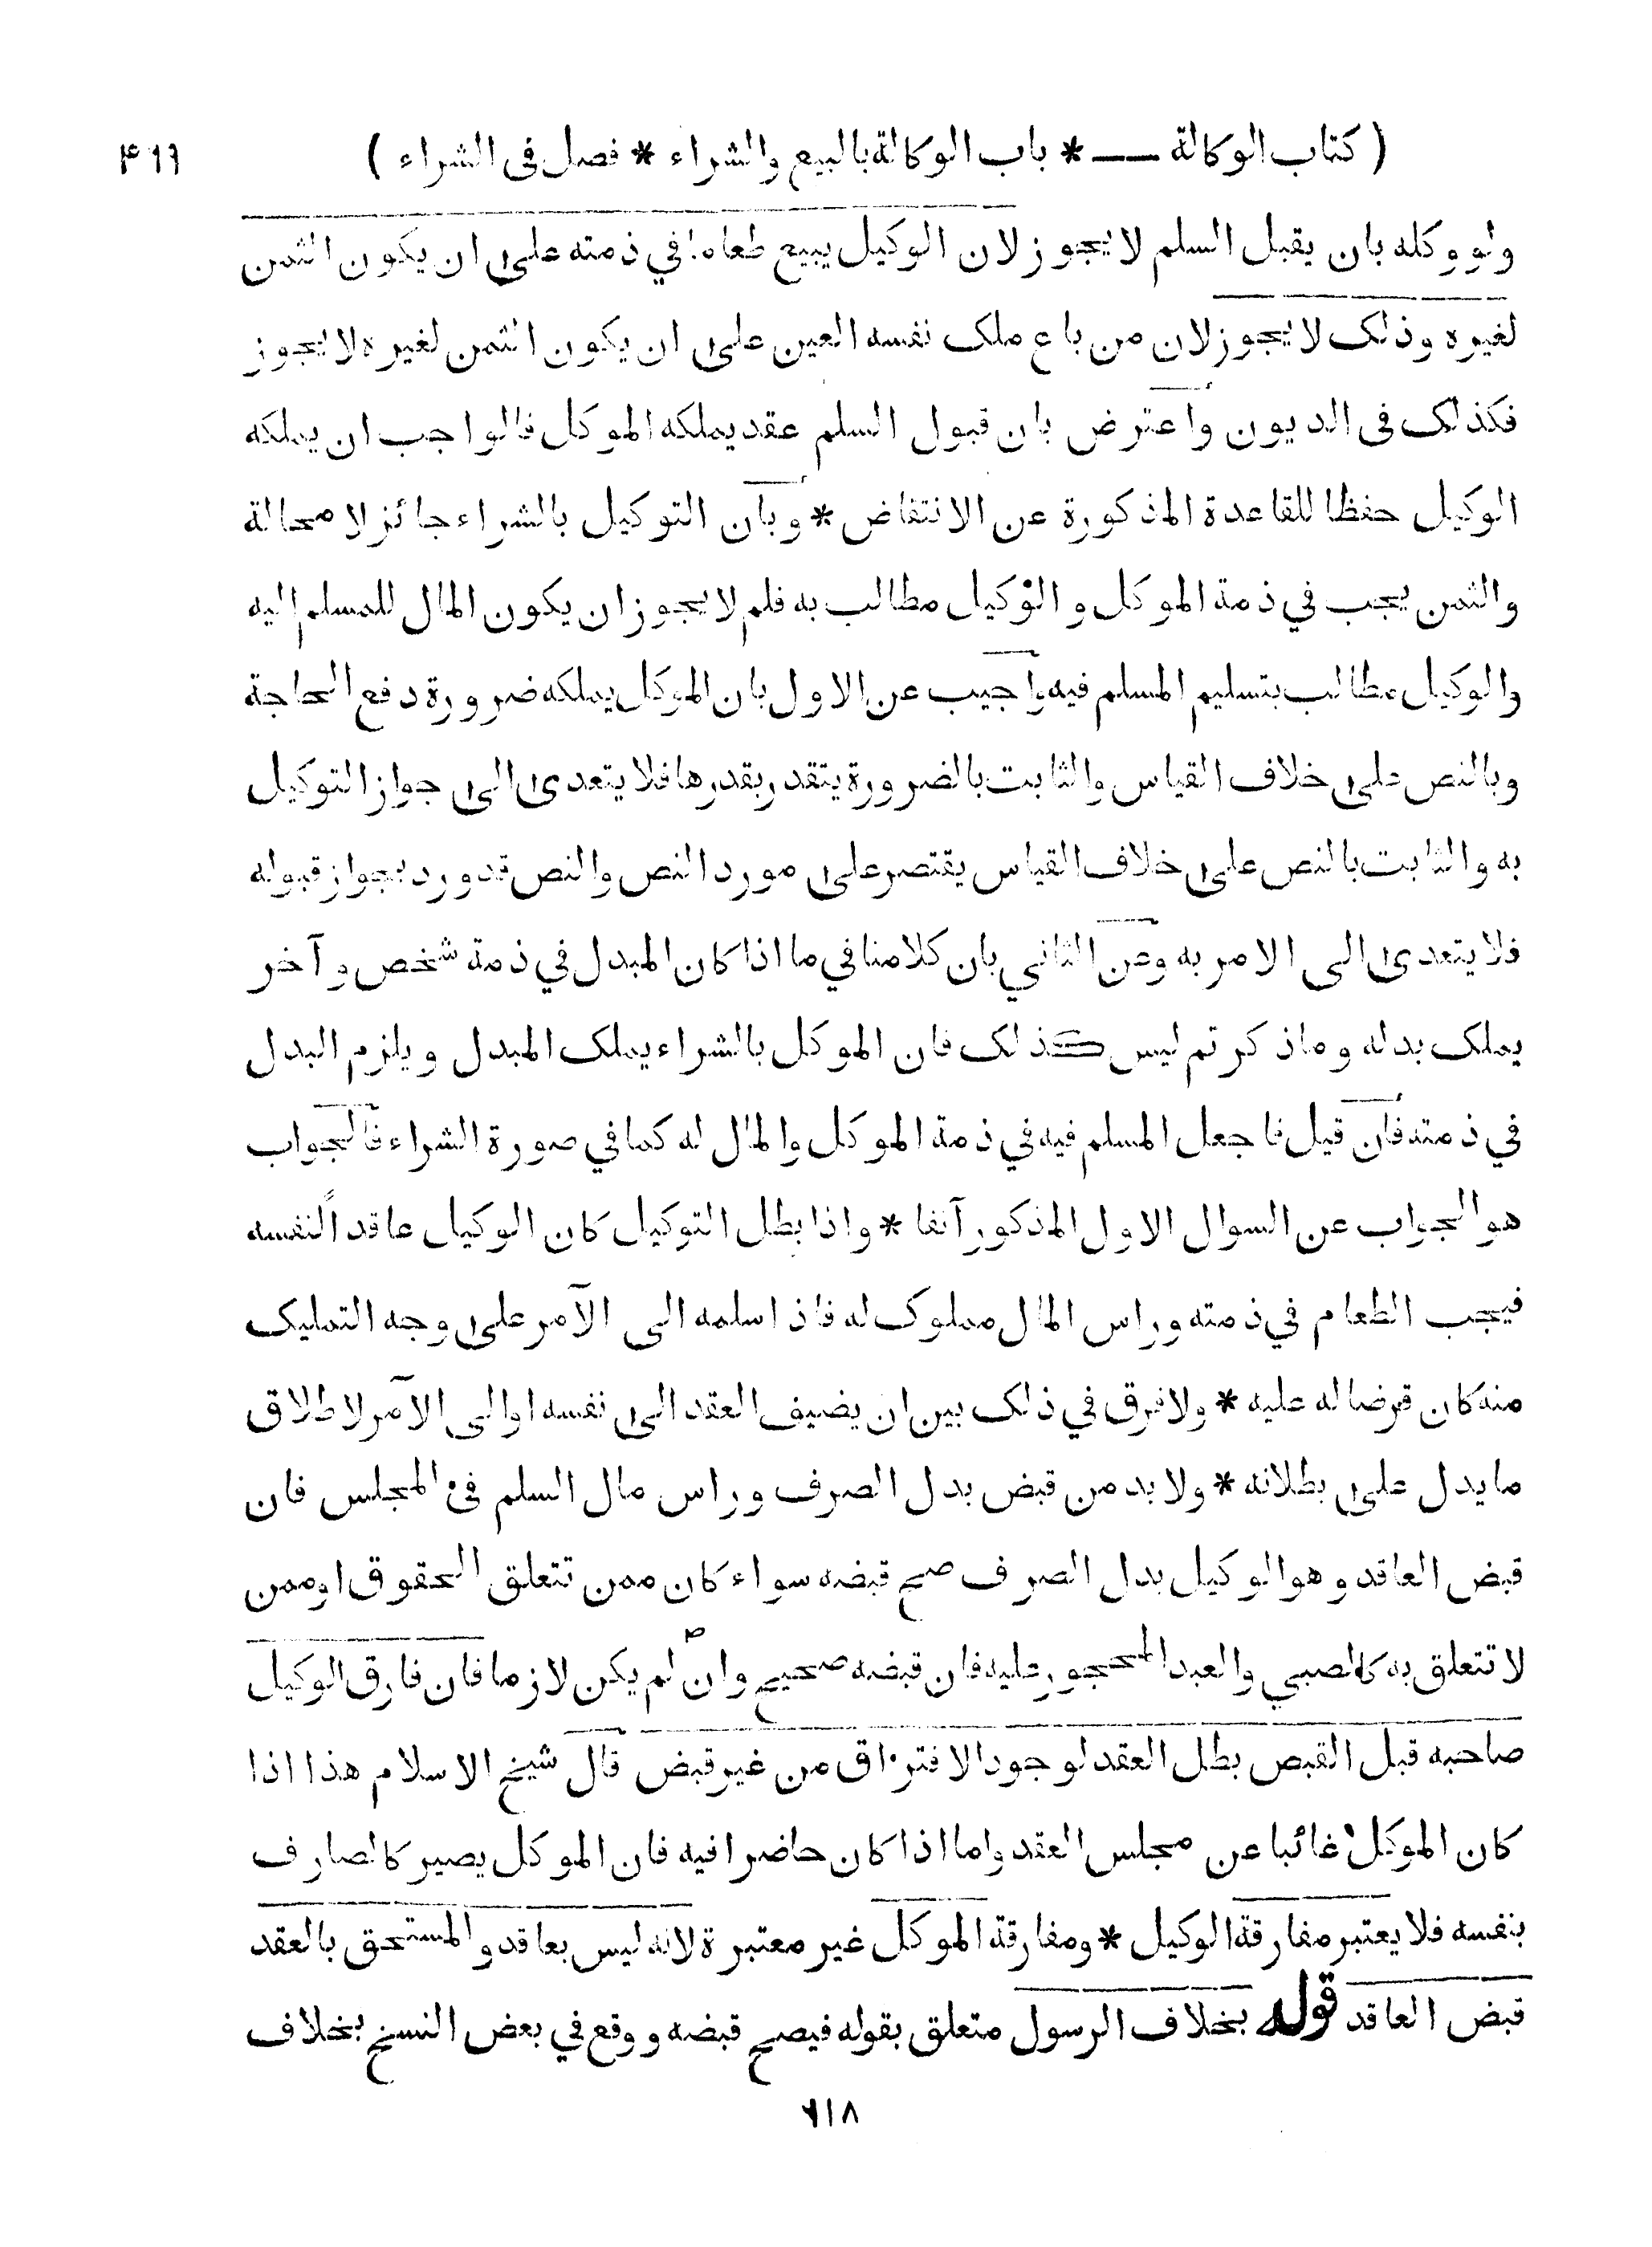 ( كتاب الوكالة — * باب الوكالة بالبيع والشراء * فصل في الشراء ) ۴۶۶
ولو وكله بان يقبل السلم لا يجوز لان الوكيل يبيع طعاما في ذمته على ان يكون الثمن
لغيره وذلك لا يجوز لان من باع ملك نفسه العين على ان يكون الثمن لغيره لا يجوز
فكذلك في الديون واعترض بان قبول السلم عقد يملكه الموكل فالواجب ان يملكه
الوكيل حفظا للقاعدة المذكورة عن الانتقاض * وبان التوكيل بالشراء جائز لا محالة
والثمن يجب في ذمة الموكل و الوكيل مطالب به فلم لا يجوز ان يكون المال للمسلم اليه
والوكيل مطالب بتسليم المسلم فيه واجيب عن الاول بان الموكل يملكه ضرورة دفع الحاجة
وبالنص على خلاف القياس والثابت بالضرورة يتقدر بقدرها فلا يتعدى الى جواز التوكيل
به والثابت بالنص على خلاف القياس يقتصر على مورد النص والنص قد ورد بجواز قبوله
فلا يتعدى الى الامر به وعن الثاني بان كلامنا في ما اذا كان المبدل في ذمة شخص و آخر
يملك بدله وما ذكرتم ليس كذلك فان الموكل بالشراء يملك المبدل ويلزم البدل
في ذمته فان قيل فاجعل المسلم فيه في ذمة الموكل والمال له كما في صورة الشراء فالجواب
هو الجواب عن السوال الاول المذكور آنفا * واذا بطل التوكيل كان الوكيل عاقداً لنفسه
فيجب الطعام في ذمته وراس المال مملوك له فاذا سلمه الى الآمر على وجه التمليك
منه كان قرضا له عليه * ولا فرق في ذلك بين ان يضيف العقد الى نفسه او الى الآمر لاطلاق
ما يدل على بطلانه * ولا بد من قبض بدل الصرف وراس مال السلم في المجلس فان
قبض العاقد وهو الوكيل بدل الصرف صح قبضه سواء كان ممن تتعلق الحقوق او ممن
لا تتعلق به كالصبي والعبد المحجور عليه فان قبضه صحيح وان لم يكن لازما فان فارق الوكيل
صاحبه قبل القبض بطل العقد لوجود الافتراق من غير قبض قال شيخ الاسلام هذا اذا
كان الموكل غائبا عن مجلس العقد واما اذا كان حاضرا فيه فان الموكل يصير كالصارف
بنفسه فلا يعتبر مفارقة الوكيل * ومفارقة الموكل غير معتبرة لانه ليس بعاقد والمستحق بالعقد
قبض العاقد قوله بخلاف الرسول متعلق بقوله فيصح قبضه ووقع في بعض النسخ بخلاف